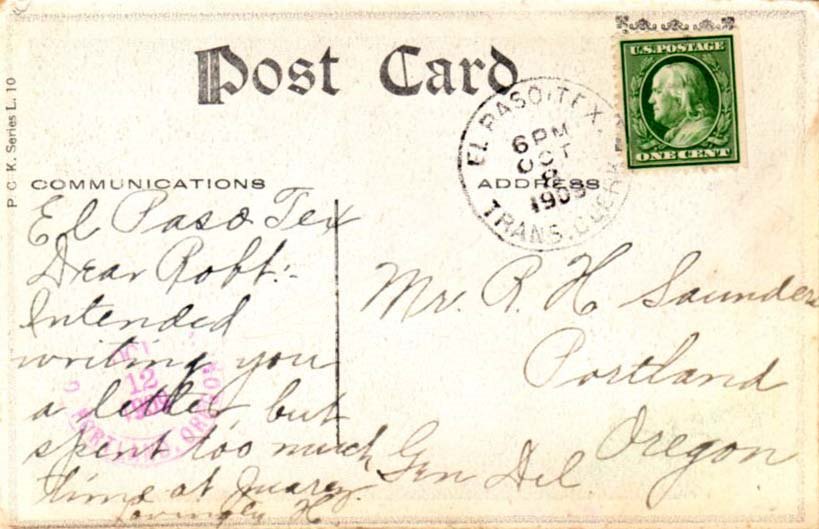 Post Card
P C K. Series L. 10
U.S. POSTAGE
ONE CENT
EL PASO, TEX.
6 PM
OCT
8
1909
TRANS. CLERK
COMMUNICATIONS
ADDRESS
El Paso Tex
Dear Robt:-
Intended
writing you
a letter, but
spent too much
time at Juarez.
Lovingly H
Mr. R. H Saunders
Portland
Oregon
Gen Del
OCT
12
PORTLAND, OREGON